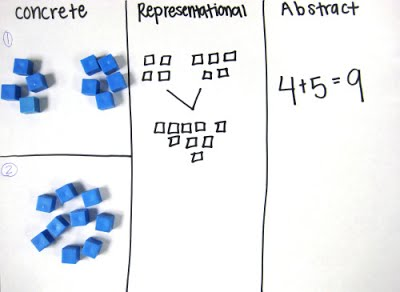 concrete
Representational
Abstract
1
4+5=9
2